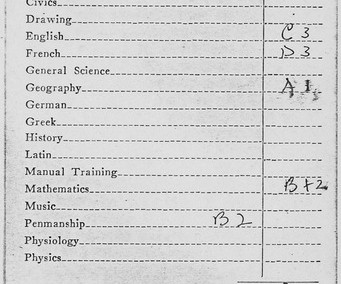 Civics
Drawing
English C 3
French D 3
General Science
Geography A 1
German
Greek
History
Latin
Manual Training
Mathematics B+2
Music
Penmanship B 2
Physiology
Physics